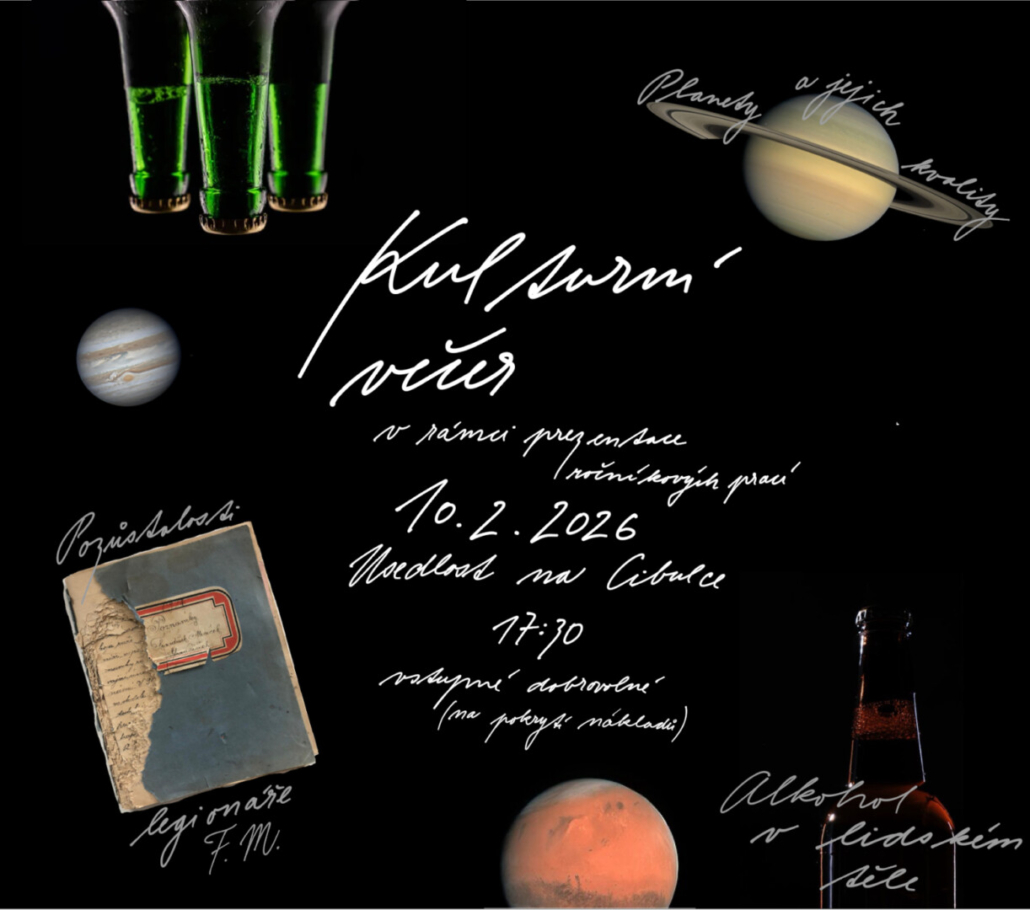 Planety a jejich kvality
Kulturní
večer
v rámci prezentace
ročníkových prací
10.2.2026
Usedlost na Cibulce
17:30
vstupné dobrovolné
(na pokrytí nákladů)
Pozůstalosti
legionáře
F.M.
Alkohol
v lidském
těle